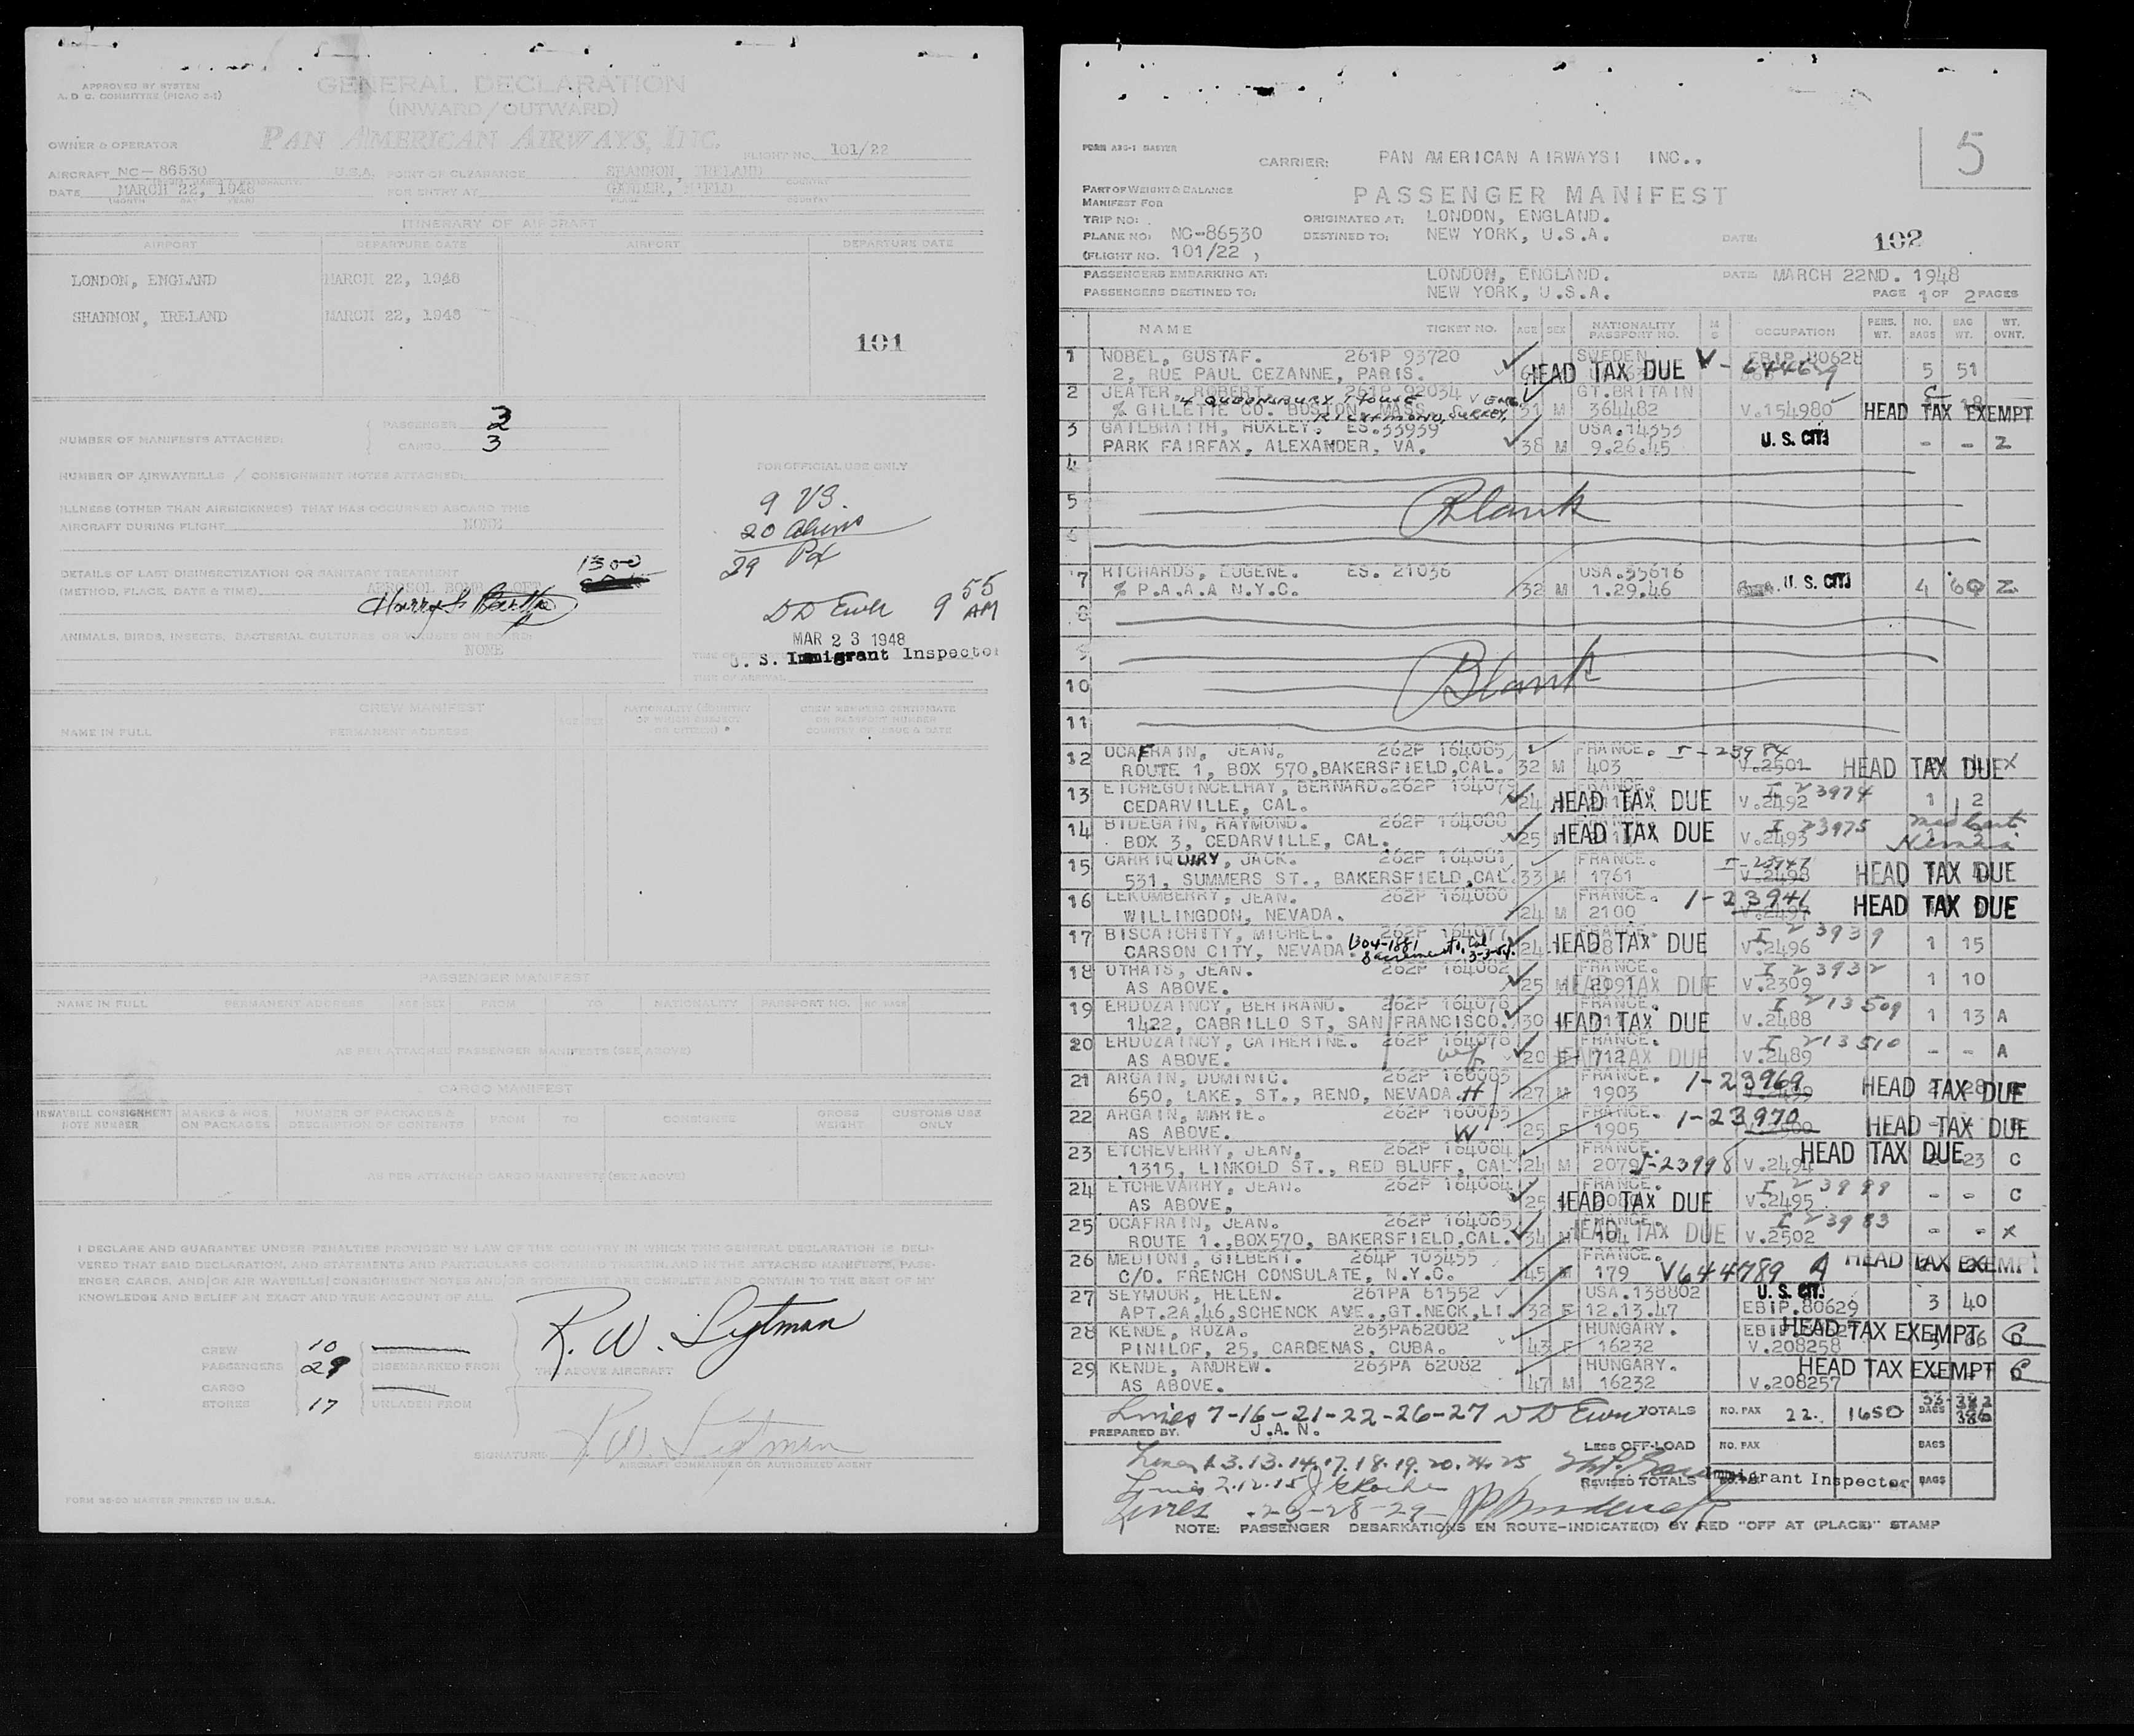 APPROVED BY SYSTEM
A. D C. COMMITTEE (PICAO 2-1)
GENERAL DECLARATION
(INWARD/OUTWARD)
PAN AMERICAN AIRWAYS, INC.
OWNER & OPERATOR
FLIGHT NO. 101/22
AIRCRAFT NC-86530 U.S.A. POINT OF CLEARANCE SHANNON, IRELAND
DATE MARCH 22, 1948 FOR ENTRY AT GANDER, NFLD
ITINERARY OF AIRCRAFT
AIRPORT DEPARTURE DATE AIRPORT DEPARTURE DATE
LONDON, ENGLAND MARCH 22, 1948
SHANNON, IRELAND MARCH 22, 1948
101
NUMBER OF MANIFESTS ATTACHED: PASSENGER
CARGO 3
NUMBER OF AIRWAYBILLS / CONSIGNMENT NOTES ATTACHED:
FOR OFFICIAL USE ONLY
ILLNESS (OTHER THAN AIRSICKNESS) THAT HAS OCCURRED ABOARD THIS
AIRCRAFT DURING FLIGHT NONE
20 Aliens
29 Px
DETAILS OF LAST DISINSECTIZATION OR SANITARY TREATMENT 1300
(METHOD, PLACE, DATE & TIME) AEROSOL BOMB
DD Ewer 9 55 AM
MAR 23 1948
U. S. Immigrant Inspector
ANIMALS, BIRDS, INSECTS, BACTERIAL CULTURES OR VIRUSES ON BOARD:
NONE
TIME OF ARRIVAL
CREW MANIFEST
NAME IN FULL PERMANENT ADDRESS AGE SEX NATIONALITY (COUNTRY OF WHICH SUBJECT OR CITIZEN) CREW MEMBERS CERTIFICATE OR PASSPORT NUMBER COUNTRY OF ISSUE & DATE
PASSENGER MANIFEST
NAME IN FULL PERMANENT ADDRESS AGE SEX FROM TO NATIONALITY PASSPORT NO. NO BAGS
AS PER ATTACHED PASSENGER MANIFESTS (SEE ABOVE)
CARGO MANIFEST
AIRWAYBILL CONSIGNMENT NOTE NUMBER MARKS & NOS. ON PACKAGES NUMBER OF PACKAGES & DESCRIPTION OF CONTENTS FROM TO CONSIGNEE GROSS WEIGHT CUSTOMS USE ONLY
AS PER ATTACHED CARGO MANIFESTS (SEE ABOVE)
I DECLARE AND GUARANTEE UNDER PENALTIES PROVIDED BY LAW OF THE COUNTRY IN WHICH THIS GENERAL DECLARATION IS DELI-
VERED THAT SAID DECLARATION, AND STATEMENTS AND PARTICULARS CONTAINED THEREIN, AND IN THE ATTACHED MANIFESTS, PASS-
ENGER CARDS, AND/OR AIR WAYBILLS/CONSIGNMENT NOTES AND/OR STORES LIST ARE COMPLETE AND CONTAIN TO THE BEST OF MY
KNOWLEDGE AND BELIEF AN EXACT AND TRUE ACCOUNT OF ALL.
CREW 10
PASSENGERS 29 DISEMBARKED FROM THE ABOVE AIRCRAFT
CARGO
STORES 17 UNLADEN FROM
SIGNATURE
AIRCRAFT COMMANDER OR AUTHORIZED AGENT
FORM 98-90 MASTER PRINTED IN U.S.A.
5
FORM ABG-1 MASTER
CARRIER: PAN AMERICAN AIRWAYS! INC..
PART OF WEIGHT & BALANCE
MANIFEST FOR
PASSENGER MANIFEST
TRIP NO: ORIGINATED AT: LONDON, ENGLAND.
PLANE NO: NC-86530 DESTINED TO: NEW YORK, U.S.A. DATE: 102
(FLIGHT NO. 101/22 )
PASSENGERS EMBARKING AT: LONDON, ENGLAND. DATE: MARCH 22ND. 1948
PASSENGERS DESTINED TO: NEW YORK, U.S.A. PAGE 1 OF 2 PAGES
NAME TICKET NO. AGE SEX NATIONALITY PASSPORT NO. OCCUPATION PERS. WT. NO. BAGS BAG WT. WT. OVNT.
1 NOBEL, GUSTAF. 261P 93720 SWEDEN EBIP 80628
2, RUE PAUL CEZANNE, PARIS. HEAD TAX DUE V-644659 5 51
2 JEATER, ROBERT. 261P 92034 GT.BRITAIN
4 QUEENSBURY HOUSE RICHMOND, SURREY, ENG.
% GILLETTE CO. BOSTON, MASS 31 M 364482 V.154980 HEAD TAX EXEMPT
3 GAILBRAITH, HUXLEY. ES.33939 USA.14353
PARK FAIRFAX, ALEXANDER, VA. 38 M 9.26.45 U. S. CIT. - - Z
4
5 Blank
6
7 RICHARDS, EUGENE. ES. 21036 USA.35616
% P.A.A.A N.Y.C. 32 M 1.29.46 U. S. CIT. 4 60 Z
8
9
10 Blank
11
12 OCAFRAIN, JEAN. 262P 164085 FRANCE. I-23984
ROUTE 1, BOX 570,BAKERSFIELD,CAL. 32 M 403 V.2501 HEAD TAX DUE X
13 ETCHEGUINCELHAY, BERNARD.262P 164079 FRANCE. I 23974
CEDARVILLE, CAL. 24 HEAD TAX DUE V.2492 1 2
14 BIDEGAIN, RAYMOND. 262P 164080 I 23975
BOX 3, CEDARVILLE, CAL. 25 HEAD TAX DUE V.2493
15 CARRIQUIRY, JACK. 262P 164081 FRANCE.
531, SUMMERS ST., BAKERSFIELD,CAL. 33 M 1761 V.2498 HEAD TAX DUE
16 LEKUMBERRY, JEAN. 262P 164080 FRANCE. 1-23941
WILLINGDON, NEVADA. 24 M 2100 V.2497 HEAD TAX DUE
17 BISCAICHITY, MICHEL. 262P 164077 I 23939
CARSON CITY, NEVADA. 1304-1881 Sacramento, Cal 3-3-54. 24 HEAD TAX DUE V.2496 1 15
18 UTHATS, JEAN. 262P 164082 FRANCE. I 23932
AS ABOVE. 25 M 2091 HEAD TAX DUE V.2309 1 10
19 ERDOZAINCY, BERTRAND. 262P 164078 FRANCE. I 213509
1422, CABRILLO ST, SAN FRANCISCO. 30 HEAD TAX DUE V.2488 1 13 A
20 ERDOZAINCY, CATHERINE. 262P 164078 FRANCE. I 213510
AS ABOVE. wf 20 F 712 HEAD TAX DUE V.2489 - - A
21 ARGAIN, DOMINIC. 262P 160083 FRANCE. 1-23969
650, LAKE, ST., RENO, NEVADA. H 27 M 1903 HEAD TAX DUE
22 ARGAIN, MARIE. 262P 160083 FRANCE. 1-23970
AS ABOVE. W 25 F 1905 HEAD TAX DUE
23 ETCHEVERRY, JEAN, 262P 164084 FRANCE.
1315, LINKOLD ST., RED BLUFF, CAL 24 M 2079 I-23998 V.2494 HEAD TAX DUE 23 C
24 ETCHEVARRY, JEAN. 262P 164084 FRANCE. I 23999
AS ABOVE, 25 HEAD TAX DUE V.2495 - - C
25 OCAFRAIN, JEAN. 262P 164085 FRANCE. I 23983
ROUTE 1.,BOX570, BAKERSFIELD,CAL. 34 HEAD TAX DUE V.2502 - - X
26 MEDIONI, GILBERT. 264P 103455 FRANCE.
C/O. FRENCH CONSULATE, N.Y.C. 45 M 179 V644789 A HEAD TAX EXEMPT
27 SEYMOUR, HELEN. 261PA 61552 USA.138802 U. S. CIT.
APT.2A,46,SCHENCK AVE.,GT.NECK,LI. 32 F 12.13.47 EBIP.80629 3 40
28 KENDE, ROZA. 263PA62082 HUNGARY. HEAD TAX EXEMPT
PINILOF, 25, CARDENAS, CUBA. 43 F 16232 V.208258
29 KENDE, ANDREW. 263PA 62082 HUNGARY. HEAD TAX EXEMPT
AS ABOVE. 47 M 16232 V.208257
Lines 7-16-21-22-26-27 DD Ewer TOTALS NO. PAX 22. 1650 BAGS
PREPARED BY. J.A.N.
LESS OFF-LOAD NO. PAX BAGS
Lines 1.3.13.14.17.18.19.20.24.25
REVISED TOTALS Immigrant Inspector BAGS
Lines 2.12.15
Lines 23-28-29
NOTE: PASSENGER DEBARKATIONS EN ROUTE-INDICATE(D) BY RED "OFF AT (PLACE)" STAMP